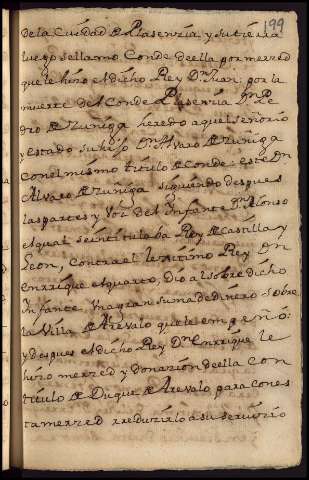 199
de la Cuidad de Plasenzia, y su tierra
luego se llamo Conde de ella por merzed
que le hizo el dicho Rey Dn Juan; por la
muerte del Conde Plasenzia Dn Pe
dro de Zuñiga heredo aquel señorio
y estado su hijo Dn Alvaro de Zuñiga
con el mismo titulo de Conde: este Dn
Alvaro de Zuñiga siguiendo despues
las partes y Voz del Infante Dn Alonso
el qual se intitulaba Rey de Castilla y
Leon, contra el lexitimo Rey Dn
Enrrique el quarto, dió al sobre dicho
Infante Vna gran suma de dinero sobre
la Villa de Arevalo que le empeño:
y despues el dicho Rey Dn Enrrique le
hizo merzed y donazion de ella con
titulo de Duque de Arevalo para con es
ta merzed rreduzirlo a su servizio